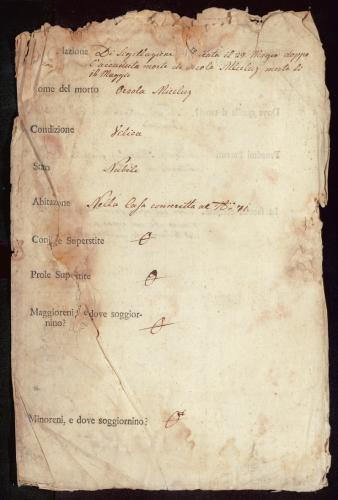 lazione Di Sigillazione fatta il 29 Maggio doppo
l'accaduta morte di Orsola Miceluz morta li
16 Maggio
ome del morto Orsola Miceluz
Condizione
Stato Nubile
Abitazione Nella Casa connscritta al N° 71
Coniuge Superstite
Prole Superstite
Maggioreni, e dove soggior-
nino?
Minoreni, e dove soggiornino?